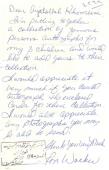 Dear Crystabel Robinson
I'm putting together
a collection of famous
Persons Autographs for
my 3 children and would
like to add yours to their
collection.
I would appreciate it
very much if you would
autograph the enclosed
Cards for their collection
I would also appreciate
any photographs you may
be able to send.
Thank you very much
Ron Wacker